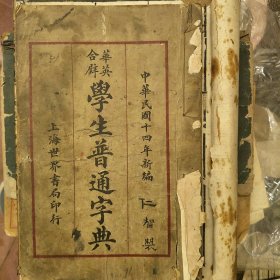 中華民國十四年新編
華英
合辟
學生普通字典
上海世界書局印行